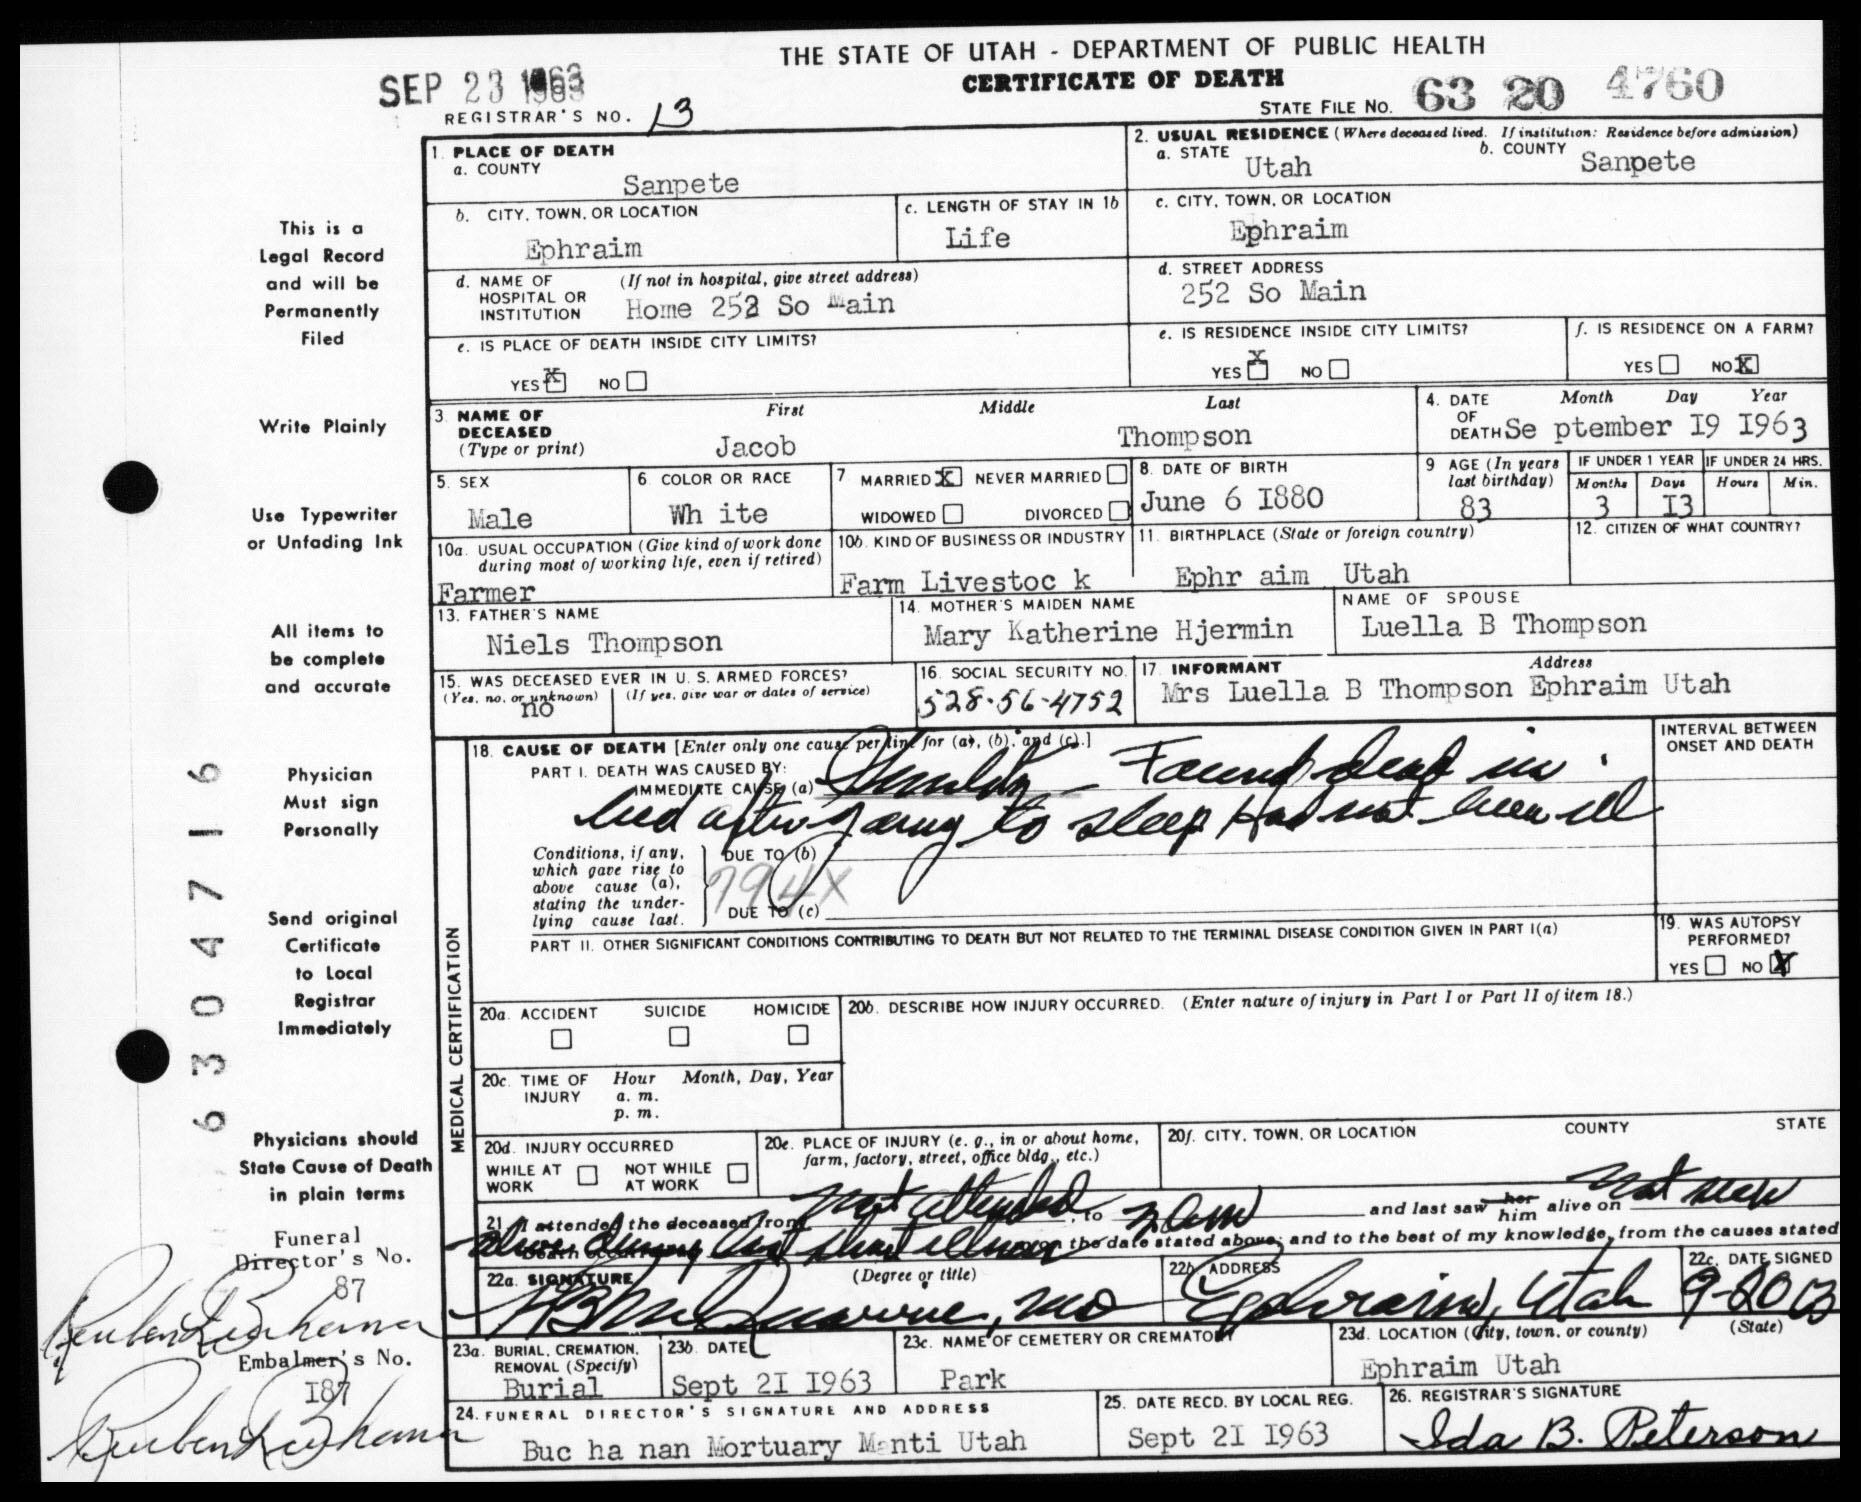 THE STATE OF UTAH - DEPARTMENT OF PUBLIC HEALTH
CERTIFICATE OF DEATH
SEP 23 1963
REGISTRAR'S NO. 13
STATE FILE NO. 63 20 4760
1. PLACE OF DEATH
a. COUNTY
Sanpete
2. USUAL RESIDENCE (Where deceased lived. If institution: Residence before admission)
a. STATE Utah b. COUNTY Sanpete
b. CITY, TOWN, OR LOCATION
Ephraim
c. LENGTH OF STAY IN 1b
Life
c. CITY, TOWN, OR LOCATION
Ephraim
d. NAME OF HOSPITAL OR INSTITUTION (If not in hospital, give street address)
Home 252 So Main
d. STREET ADDRESS
252 So Main
e. IS PLACE OF DEATH INSIDE CITY LIMITS?
YES X NO
e. IS RESIDENCE INSIDE CITY LIMITS?
YES X NO
f. IS RESIDENCE ON A FARM?
YES NO X
3. NAME OF DECEASED (Type or print)
First Middle Last
Jacob Thompson
4. DATE OF DEATH Month Day Year
Se ptember I9 I963
5. SEX
Male
6. COLOR OR RACE
Wh ite
7. MARRIED X NEVER MARRIED
WIDOWED DIVORCED
8. DATE OF BIRTH
June 6 I880
9 AGE (In years last birthday)
83
IF UNDER 1 YEAR
Months Days
3 I3
IF UNDER 24 HRS.
Hours Min.
10a. USUAL OCCUPATION (Give kind of work done during most of working life, even if retired)
Farmer
10b. KIND OF BUSINESS OR INDUSTRY
Farm Livestoc k
11. BIRTHPLACE (State or foreign country)
Ephr aim Utah
12. CITIZEN OF WHAT COUNTRY?
13. FATHER'S NAME
Niels Thompson
14. MOTHER'S MAIDEN NAME
Mary Katherine Hjermin
NAME OF SPOUSE
Luella B Thompson
15. WAS DECEASED EVER IN U. S. ARMED FORCES?
(Yes, no, or unknown) (If yes, give war or dates of service)
no
16. SOCIAL SECURITY NO.
528-56-4752
17. INFORMANT Address
Mrs Luella B Thompson Ephraim Utah
MEDICAL CERTIFICATION
18. CAUSE OF DEATH [Enter only one cause per line for (a), (b), and (c).]
PART I. DEATH WAS CAUSED BY:
IMMEDIATE CAUSE (a) Found dead in
bed after going to sleep Had not been ill
INTERVAL BETWEEN ONSET AND DEATH
Conditions, if any, which gave rise to above cause (a), stating the underlying cause last.
DUE TO (b)
794X
DUE TO (c)
PART II. OTHER SIGNIFICANT CONDITIONS CONTRIBUTING TO DEATH BUT NOT RELATED TO THE TERMINAL DISEASE CONDITION GIVEN IN PART I(a)
19. WAS AUTOPSY PERFORMED?
YES NO X
20a. ACCIDENT SUICIDE HOMICIDE
20b. DESCRIBE HOW INJURY OCCURRED. (Enter nature of injury in Part I or Part II of item 18.)
20c. TIME OF INJURY Hour Month, Day, Year
a. m.
p. m.
20d. INJURY OCCURRED
WHILE AT WORK NOT WHILE AT WORK
20e. PLACE OF INJURY (e. g., in or about home, farm, factory, street, office bldg., etc.)
20f. CITY, TOWN, OR LOCATION COUNTY STATE
21. I attended the deceased from not attended, to and last saw her him alive on not seen
on the date stated above; and to the best of my knowledge, from the causes stated
22a. SIGNATURE (Degree or title)
MD
22b. ADDRESS
Ephraim, Utah
22c. DATE SIGNED
9-20 63
23a. BURIAL, CREMATION, REMOVAL (Specify)
Burial
23b. DATE
Sept 2I I963
23c. NAME OF CEMETERY OR CREMATORY
Park
23d. LOCATION (City, town, or county) (State)
Ephraim Utah
24. FUNERAL DIRECTOR'S SIGNATURE AND ADDRESS
Buc ha nan Mortuary Manti Utah
25. DATE RECD. BY LOCAL REG.
Sept 2I I963
26. REGISTRAR'S SIGNATURE
Ida B. Peterson
This is a
Legal Record
and will be
Permanently
Filed
Write Plainly
Use Typewriter
or Unfading Ink
All items to
be complete
and accurate
Physician
Must sign
Personally
Send original
Certificate
to Local
Registrar
Immediately
Physicians should
State Cause of Death
in plain terms
Funeral
Director's No.
87
Embalmer's No.
I87
6304716